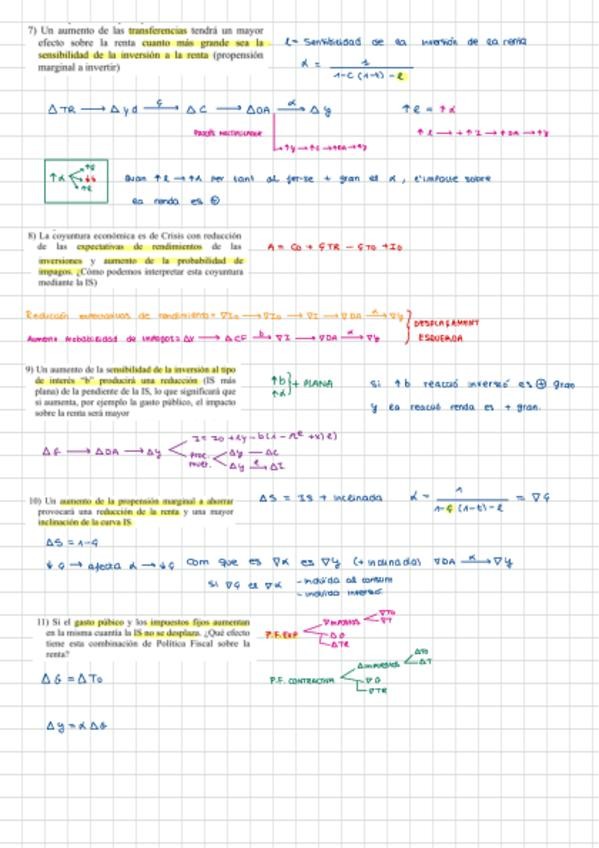 7) Un aumento de las transferencias tendrá un mayor
efecto sobre la renta cuanto más grande sea la
sensibilidad de la inversión a la renta (propensión
marginal a invertir)
l = Sensibilidad de la inversión de la renta
α = 1 / 1-c (1-t) - l
Δ TR → Δ yd → Δ C → Δ DA → Δ y
↑ l = ↑ α
↑ l → + ↑ I → ↑ DA → ↑ y
Quan ↑ l → ↑ α per tant al fer-se + gran el α, l'impacte sobre
la renda es ⊕
8) La coyuntura económica es de Crisis con reducción
de las expectativas de rendimientos de las
inversiones y aumento de la probabilidad de
impagos. ¿Cómo podemos interpretar esta coyuntura
mediante la IS)
A = Co + ç TR - ç To + Io
Reducción expectativas de rendimiento = ∇Io → ∇Io → ∇I → ∇DA → ∇y
Aumento Probabilidad de impagos = Δx → Δ CF → ∇I → ∇DA → ∇y
DESPLAÇAMENT
ESQUERDA
9) Un aumento de la sensibilidad de la inversión al tipo
de interés "b" producirá una reducción (IS más
plana) de la pendiente de la IS, lo que significará que
si aumenta, por ejemplo la gasto público, el impacto
sobre la renta será mayor
↑ b
↑ α
+ PLANA
Si ↑ b reacció inversió es ⊕ gran
y la reacció renda es + gran.
Δ G → Δ DA → Δ y
Δ y → Δ C
Δ y → Δ I
10) Un aumento de la propensión marginal a ahorrar
provocará una reducción de la renta y una mayor
inclinación de la curva IS
Δ S = IS + inclinada
α = 1 / 1-ç (1-t) - l = ∇ ç
Δ S = 1-ç
↓ ç → afecta α → ↓ ç Com que es ∇α es ∇y (+ inclinada) ∇DA → ∇y
Si ∇ç el ∇α - induïda al consum
- induïda inversió
11) Si el gasto púbico y los impuestos fijos aumentan
en la misma cuantía la IS no se desplaza. ¿Qué efecto
tiene esta combinación de Política Fiscal sobre la
renta?
P.F. EXP
∇ Impuestos
∇To
∇T
Δ G
Δ TR
Δ G = Δ To
P.F. CONTRACTIVA
Δ Impuestos
ΔTo
ΔT
∇ G
∇ TR
Δ y = α Δ G